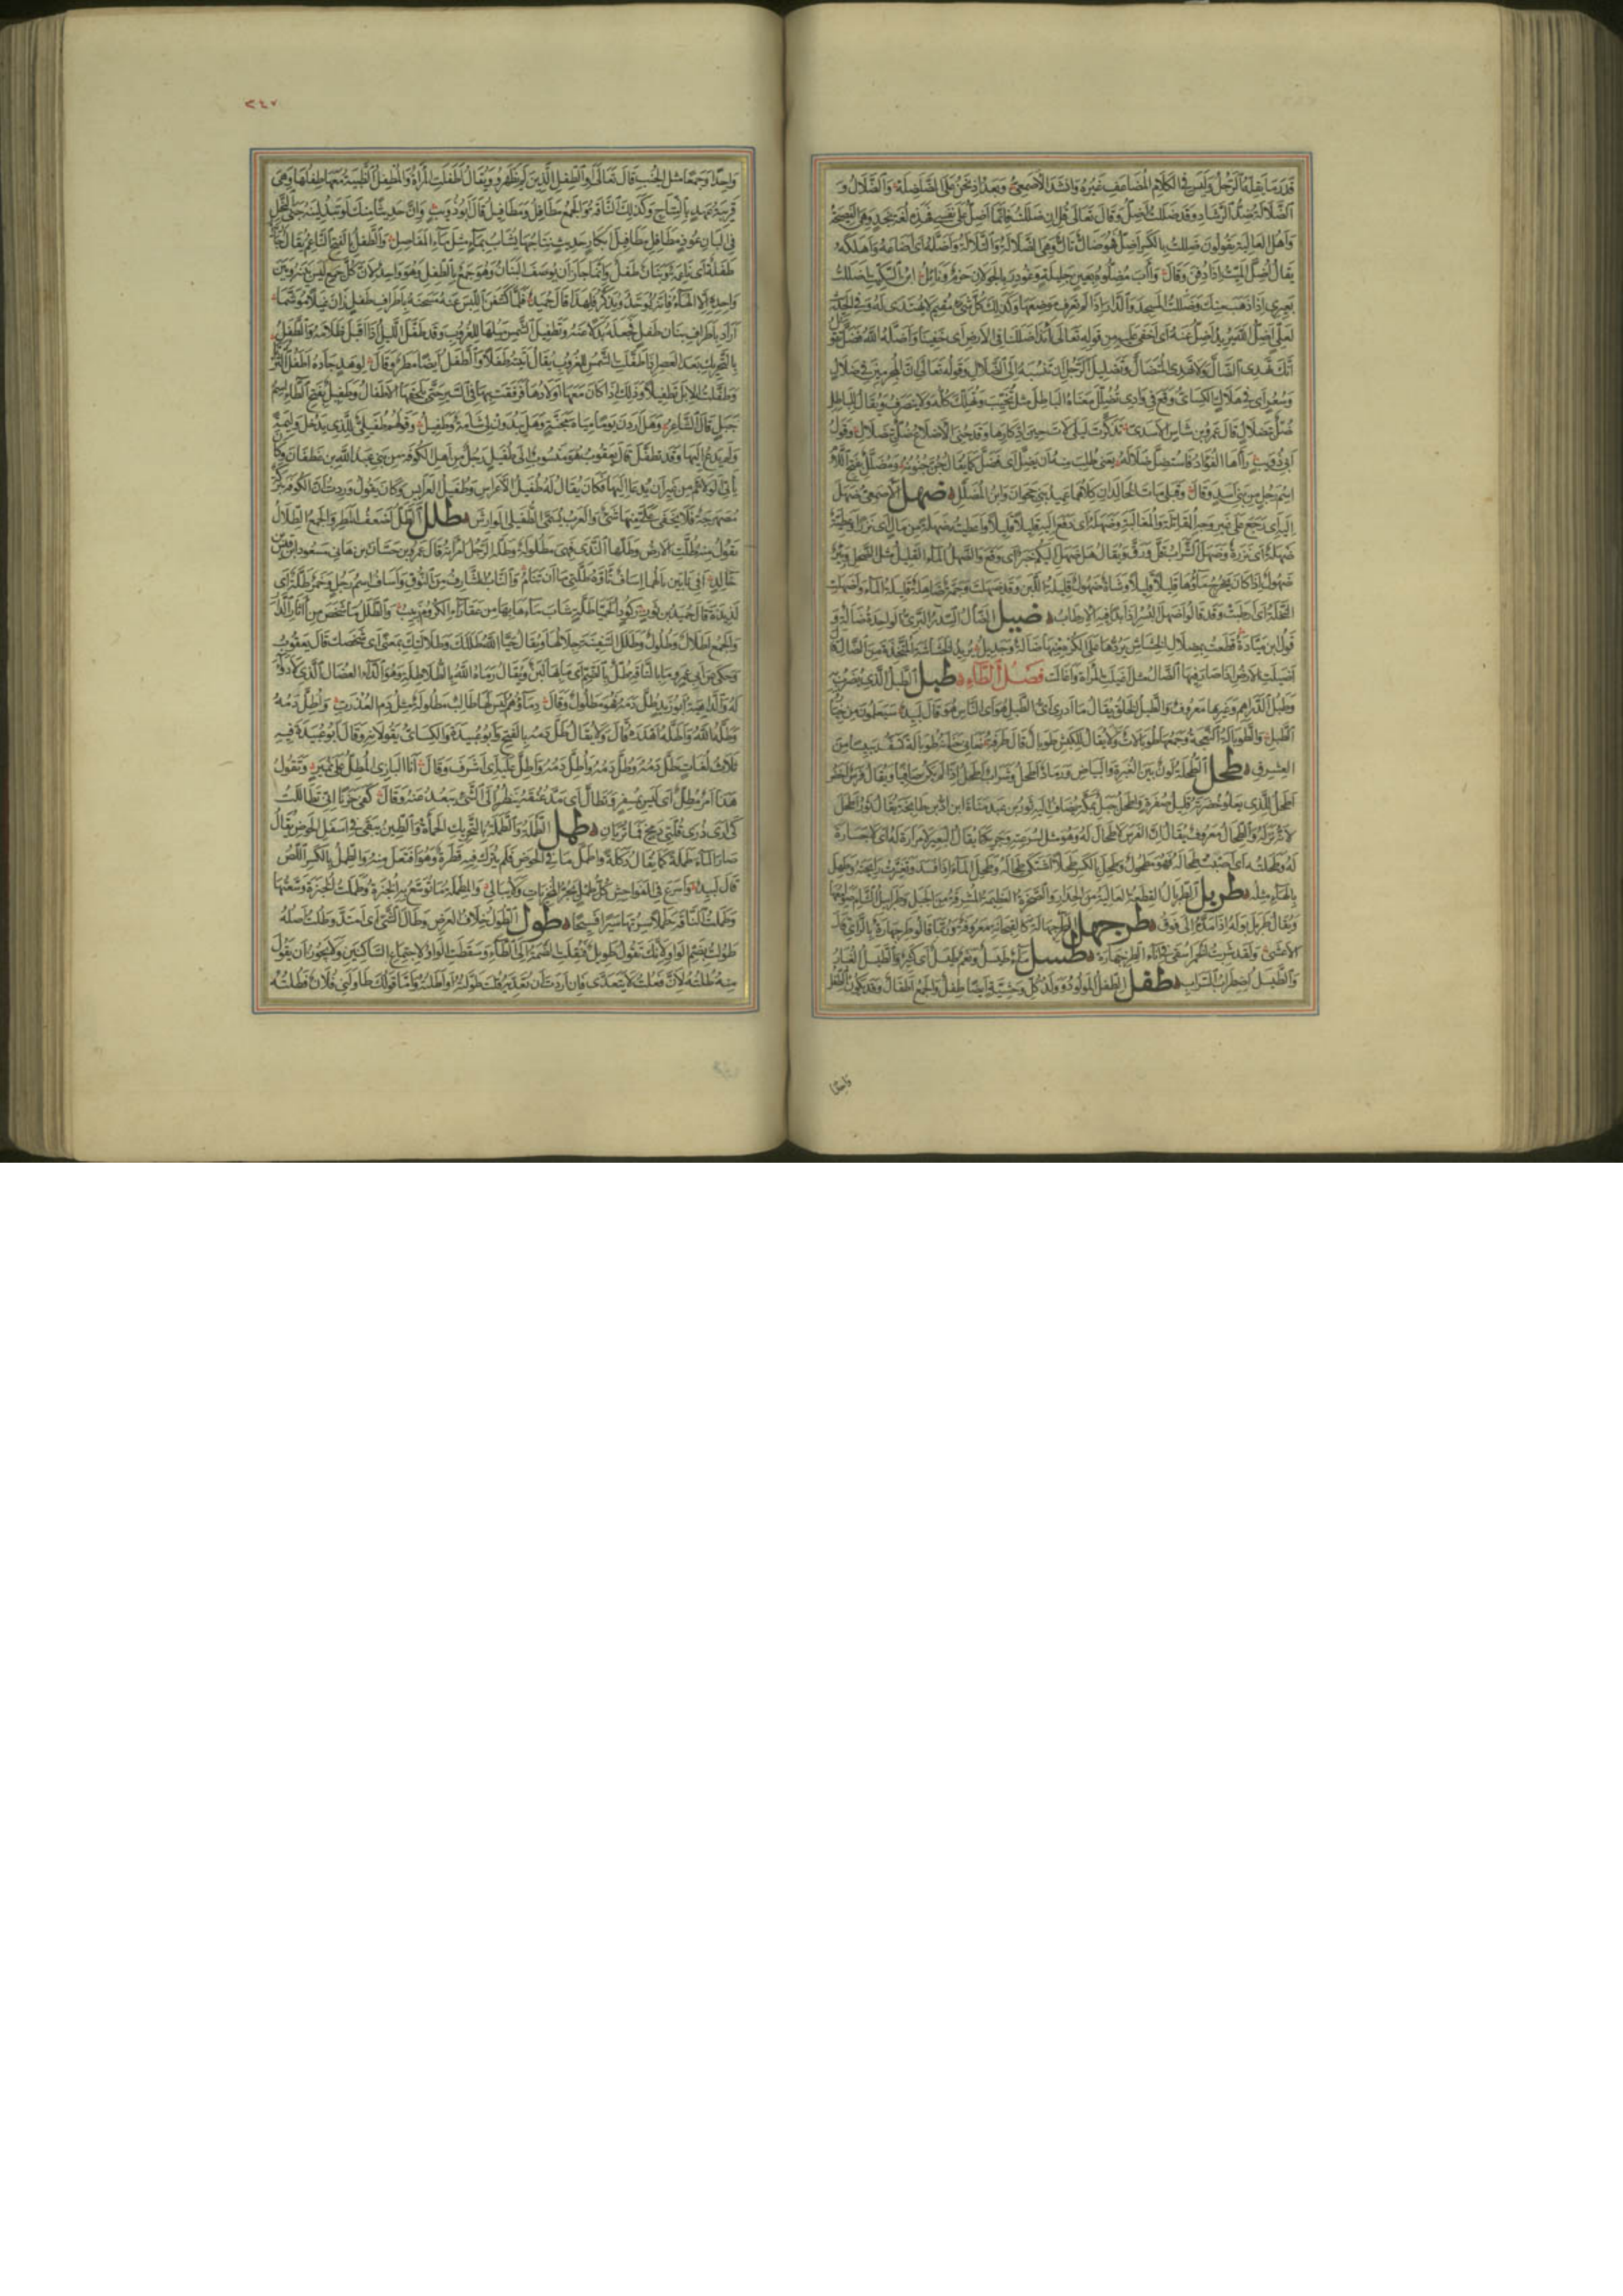 قدر ما يقله الرجل وليس في الكلام المضاعف غيره وانشد الاصمعي وبعد اذ نحن على الضلضله والضلال و
الضلالة ضد الرشاد وقد ضللت اضل وقال تعالى قل ان ضللت فانما اضل على نفسي فهذه لغة نجد وهي الفصيحة
واهل العالية يقولون ضللت بالكسر اضل وهو ضال تال وهي الضلالة والتلالة واضله اي اضاعه واهلكه
يقال اضل الميت اذا دفن وقال وآب مضلوه بعين جلية وغودر بالجولان حزم ونائل ابن السكيت اضللت
بعيري اذا ذهب منك وضللت المسجد والدار اذا لم تعرف موضعهما وكذلك كل شيء مقيم لا يهتدى له وفي الحديث
لعلي اضل الله يريد اضل عنه اي اخفى عليه من قوله تعالى ائذا ضللنا في الارض اي خفينا واضله الله فضل تقول
انك تهدي الضال ولا تهدي المتضال وتضليل الرجل ان تنسبه الى الضلال وقوله تعالى ان المجرمين في ضلال
وسعر اي في هلاك الكسائي وقع في وادي تضلل معناه الباطل مثل تخيب وتهلك كله لا ينصرف ويقال للباطل
ضل بتضلال قال عمرو بن شاس الاسدي تذكرت ليلى لات حين ادكارها وقد حني الاضلاع ضل بتضلال وقول
ابي ذؤيب رآها الفؤاد فاستضل ضلاله يعني طلب منه ان يضل اي فضل كما يقال جن جنونه ومضلل بفتح اللام
اسم رجل من بني اسد وقال وقبلي مات الخالدان كلاهما عميد بني جحوان وابن المضلل ضهل الاصمعي ضهل
اليه اي رجع على غير وجه القاتلة والمغالبة وضهله اي دفع اليه قليلا قليلا واعطيته ضهلة من مال اي نزرا وعطية
ضهلة اي نزرة وضهل الشراب قل ورق ويقال هل ضهل اليكم خبر اي وقع والضهل الماء القليل مثل الضحل وبئر
ضهول اذا كان يخرج ماؤها قليلا قليلا وشاة ضهول قليلة اللبن وقد ضهلت وجمة ضاهلة قليلة الماء واضهلت
النخلة اي ارطبت وقد قالوا اضهل البسر اذا بدا فيه الارطاب ضيل الضال السدر البري الواحدة ضالة و
قول ابن ميادة قطعت بمصلال الخشاش يردها على الكره منها ضالة وجديل يريد الخشاشة المتخذة من الضال
اضيلت الارض اذا صار فيها الضال مثل اغيلت المرأة واغالت فصل الطاء طبل الطبل الذي يضرب به
وطبل الدراهم وغيرها معروف والطبل الخلق يقال ما ادري اي الطبل هو اي الناس هو قال لبيد سيعلمون من خيار
الطبل والطوبالة النعجة وجمعها طوبالات ولا يقال للكبش طوبال قال طرفة نعاني حنانة طوبالة تسف يبيسا من
العشرق طحل الطحلة لون بين الغبرة والبياض ورماد اطحل وشراب اطحل اذا لم يكن صافيا ويقال فرس اخضر
اطحل للذي يعلو خضرته قليل صفرة واطحل جبل بمكة يضاف اليه ثور بن عبد مناة بن اد بن طابخة يقال ثور اطحل
لانه نزله والطحال معروف يقال ان الفرس لا طحال له وهو مثل لسرعته وجريه كما يقال البعير لا مرارة له اي لا جسارة
له وطحلته اي اصبت طحاله فهو مطحول وطحل بالكسر طحلا اشتكى طحاله وطحل الماء اذا فسد وتغيرت رائحته وطهل
بالهاء مثله طربل الطربال القطعة العالية من الجدار والصخرة العظيمة المشرفة من الجبل وطرابيل الشام صوامعها
ويقال طربل بوله اذا مده الى فوق طرجهل الطرجهالة كالفنجانة معروفة وربما قالوا طرجهارة بالراء قال
الاعشى ولقد شربت الخمر اسقى في اناء الطرجهاره طسل ماء طيسل ونعم طيسل اي كثير والطيسل الغبار
والطسل اضطراب السراب طفل الطفل المولود وولد كل وحشية ايضا طفل والجمع اطفال وقد يكون الطفل
واحدا
٢٤٧
واحدا وجمعا مثل الجنب قال تعالى او الطفل الذين لم يظهروا ويقال اطفلت المرأة والمطفل الظبية معها طفلها وهي
قريبة عهد بالنتاج وكذلك الناقة والجمع مطافل ومطافيل قال ابو ذؤيب وان حديثا منك لو تبذلينه جنى النحل
في البان عوذ مطافل مطافيل ابكار حديث نتاجها يشاب بماء مثل ماء المفاصل والطفل بالفتح الناعم يقال جارية
طفلة اي ناعمة وبنان طفل وانما جاز ان يوصف البنان وهو جمع بالطفل وهو واحد لان كل جمع ليس بينه وبين
واحده الا الهاء فانه يوحد ويذكر فلهذا قال حميد فلما كشفن اللبس عنه مسحنه باطراف طفل زان غيلا موشما
اراد باطراف بنان طفل فجعله بدلا عنه وتطفيل الشمس ميلها للغروب وقد طفل الليل اذا اقبل ظلامه والطفل
بالتحريك بعد العصر اذا طفلت الشمس للغروب يقال اتيته طفلا والطفل ايضا مطر وقال لوهد جاده طفل الثريا
وطفلت الابل تطفيلا وذلك اذا كان معها اولادها فرفقت بها في السير حتى تلحقها الاطفال وطفيل بفتح الطاء اسم
جبل قال الشاعر وهل اردن يوما مياه مجنة وهل يبدون لي شامة وطفيل وقولهم طفيلي للذي يدخل وليمة
ولم يدع اليها وقد تطفل قال يعقوب هو منسوب الى طفيل رجل من اهل الكوفة من بني عبد الله بن غطفان وكان
يأتي الولائم من غير ان يدعا اليها فكان يقال له طفيل الاعراس وطفيل العرائس وكان يقول وددت ان الكوفة بركة
مصهرجة فلا يخفى علي منها شيء والعرب تسمي الطفيلي الوارش طلل الطل اضعف المطر والجمع الطلال
تقول منه طلت الارض وطلها الندى فهي مطلولة وطلة الرجل امرأته قال عمرو بن حسان بن هانئ بن مسعود بن قيس
خالد افي نابين نالهما اساف تأوه طلتي ما ان تنام والناب الشارف من النوق واساف اسم رجل وخمر طلة اي
لذيذة قال حميد بن ثور ركود الحميا طلة شاب ماءها بها من عقاراء الكروم ربيب والطلل ما شخص من آثار الدار
والجمع اطلال وطلول وطلل السفينة جلالها ويقال حيا الله طللك وطلالتك بمعنى اي شخصك قال يعقوب
وحكى عن ابي عمرو ما بالناقة طل بالضم اي ما بها لبن ويقال رماه الله بالطلاطلة وهو الداء العضال الذي لا دواء
له والداهية ابو زيد طل دمه فهو مطلول وقال دماؤهم ليس لها طالب مطلولة مثل دم العذرة واطل دمه
وطله الله واطله اهدره قال ولا يقال طل دمه بالفتح وابو عبيدة والكسائي يقولانه وقال ابو عبيدة فيه
ثلاث لغات طل دمه وطل دمه واطل دمه واطل عليه اي اشرف وقال انا البازي المطل على نمير وتقول
هذا امر مطل اي ليس بمسفر وتطال اي مد عنقه ينظر الى الشيء يبعد عنه وقال كفى حزنا اني تطاللت
كي ارى ذرى قلتي دمخ فما تريان طمل الطملة والطملة بالتحريك الحمأة والطين يبقى في اسفل الحوض يقال
صار الماء طملة كما يقال دكلة واطمل ما في الحوض فلم يترك فيه قطرة وهو افتعل منه والطمل بالكسر اللص
قال لبيد واسرع في الفواحش كل طمل يجر المخزيات ولا يبالي والمطملة ما توسع به الخبزة وطملت الخبزة وسعتها
وطملت الناقة طملا سيرتها سيرا فسيحا طول الطول خلاف العرض وطال الشيء اي امتد وطلت اصله
طولت بضم الواو لانك تقول طويل فنقلت الضمة الى الطاء وسقطت الواو لاجتماع الساكنين ولا يجوز ان يقول
منه طلته لان فعلت لا يتعدى فان اردت ان تعديه قلت طولته او اطلته واما قولك طاولني فلان فطلته